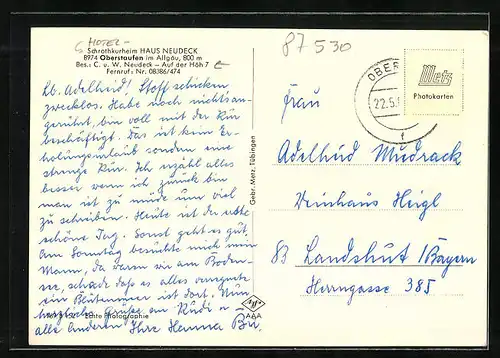 HOTEL -
Schrothkurheim HAUS NEUDECK
8974 Oberstaufen im Allgäu, 800 m
Bes.: C. u. W. Neudeck - Auf der Höh 7
Fernruf: Nr. 08386/474
87 530
Lb. Adelheid! Stoff schicken
zwecklos. Habe noch nichts an-
gerührt, bin voll mit der Kur
beschäftigt. Das ist kein Er-
holungsurlaub sondern eine
strenge Kur. Ich erzähl alles
besser wenn ich zurück bin
man ist zu müde um viel
zu schreiben. Heute ist der
schöne Tag. Sonst geht es gut,
am Sonntag besuchte mich mein
Mann, da waren wir am Boden-
see, schade daß es alles verregnete
ein Blütenmeer ist dort. Nun
herzliche Grüße an Rudi u.
alle anderen Ihre Hemma
Echte Photographie
Gebr. Metz, Tübingen
AGFA
OBER
22.5.
Metz
Photokarten
Frau
Adelheid Mudrack
Weinhaus Heigl
83 Landshut / Bayern
Herrngasse 385